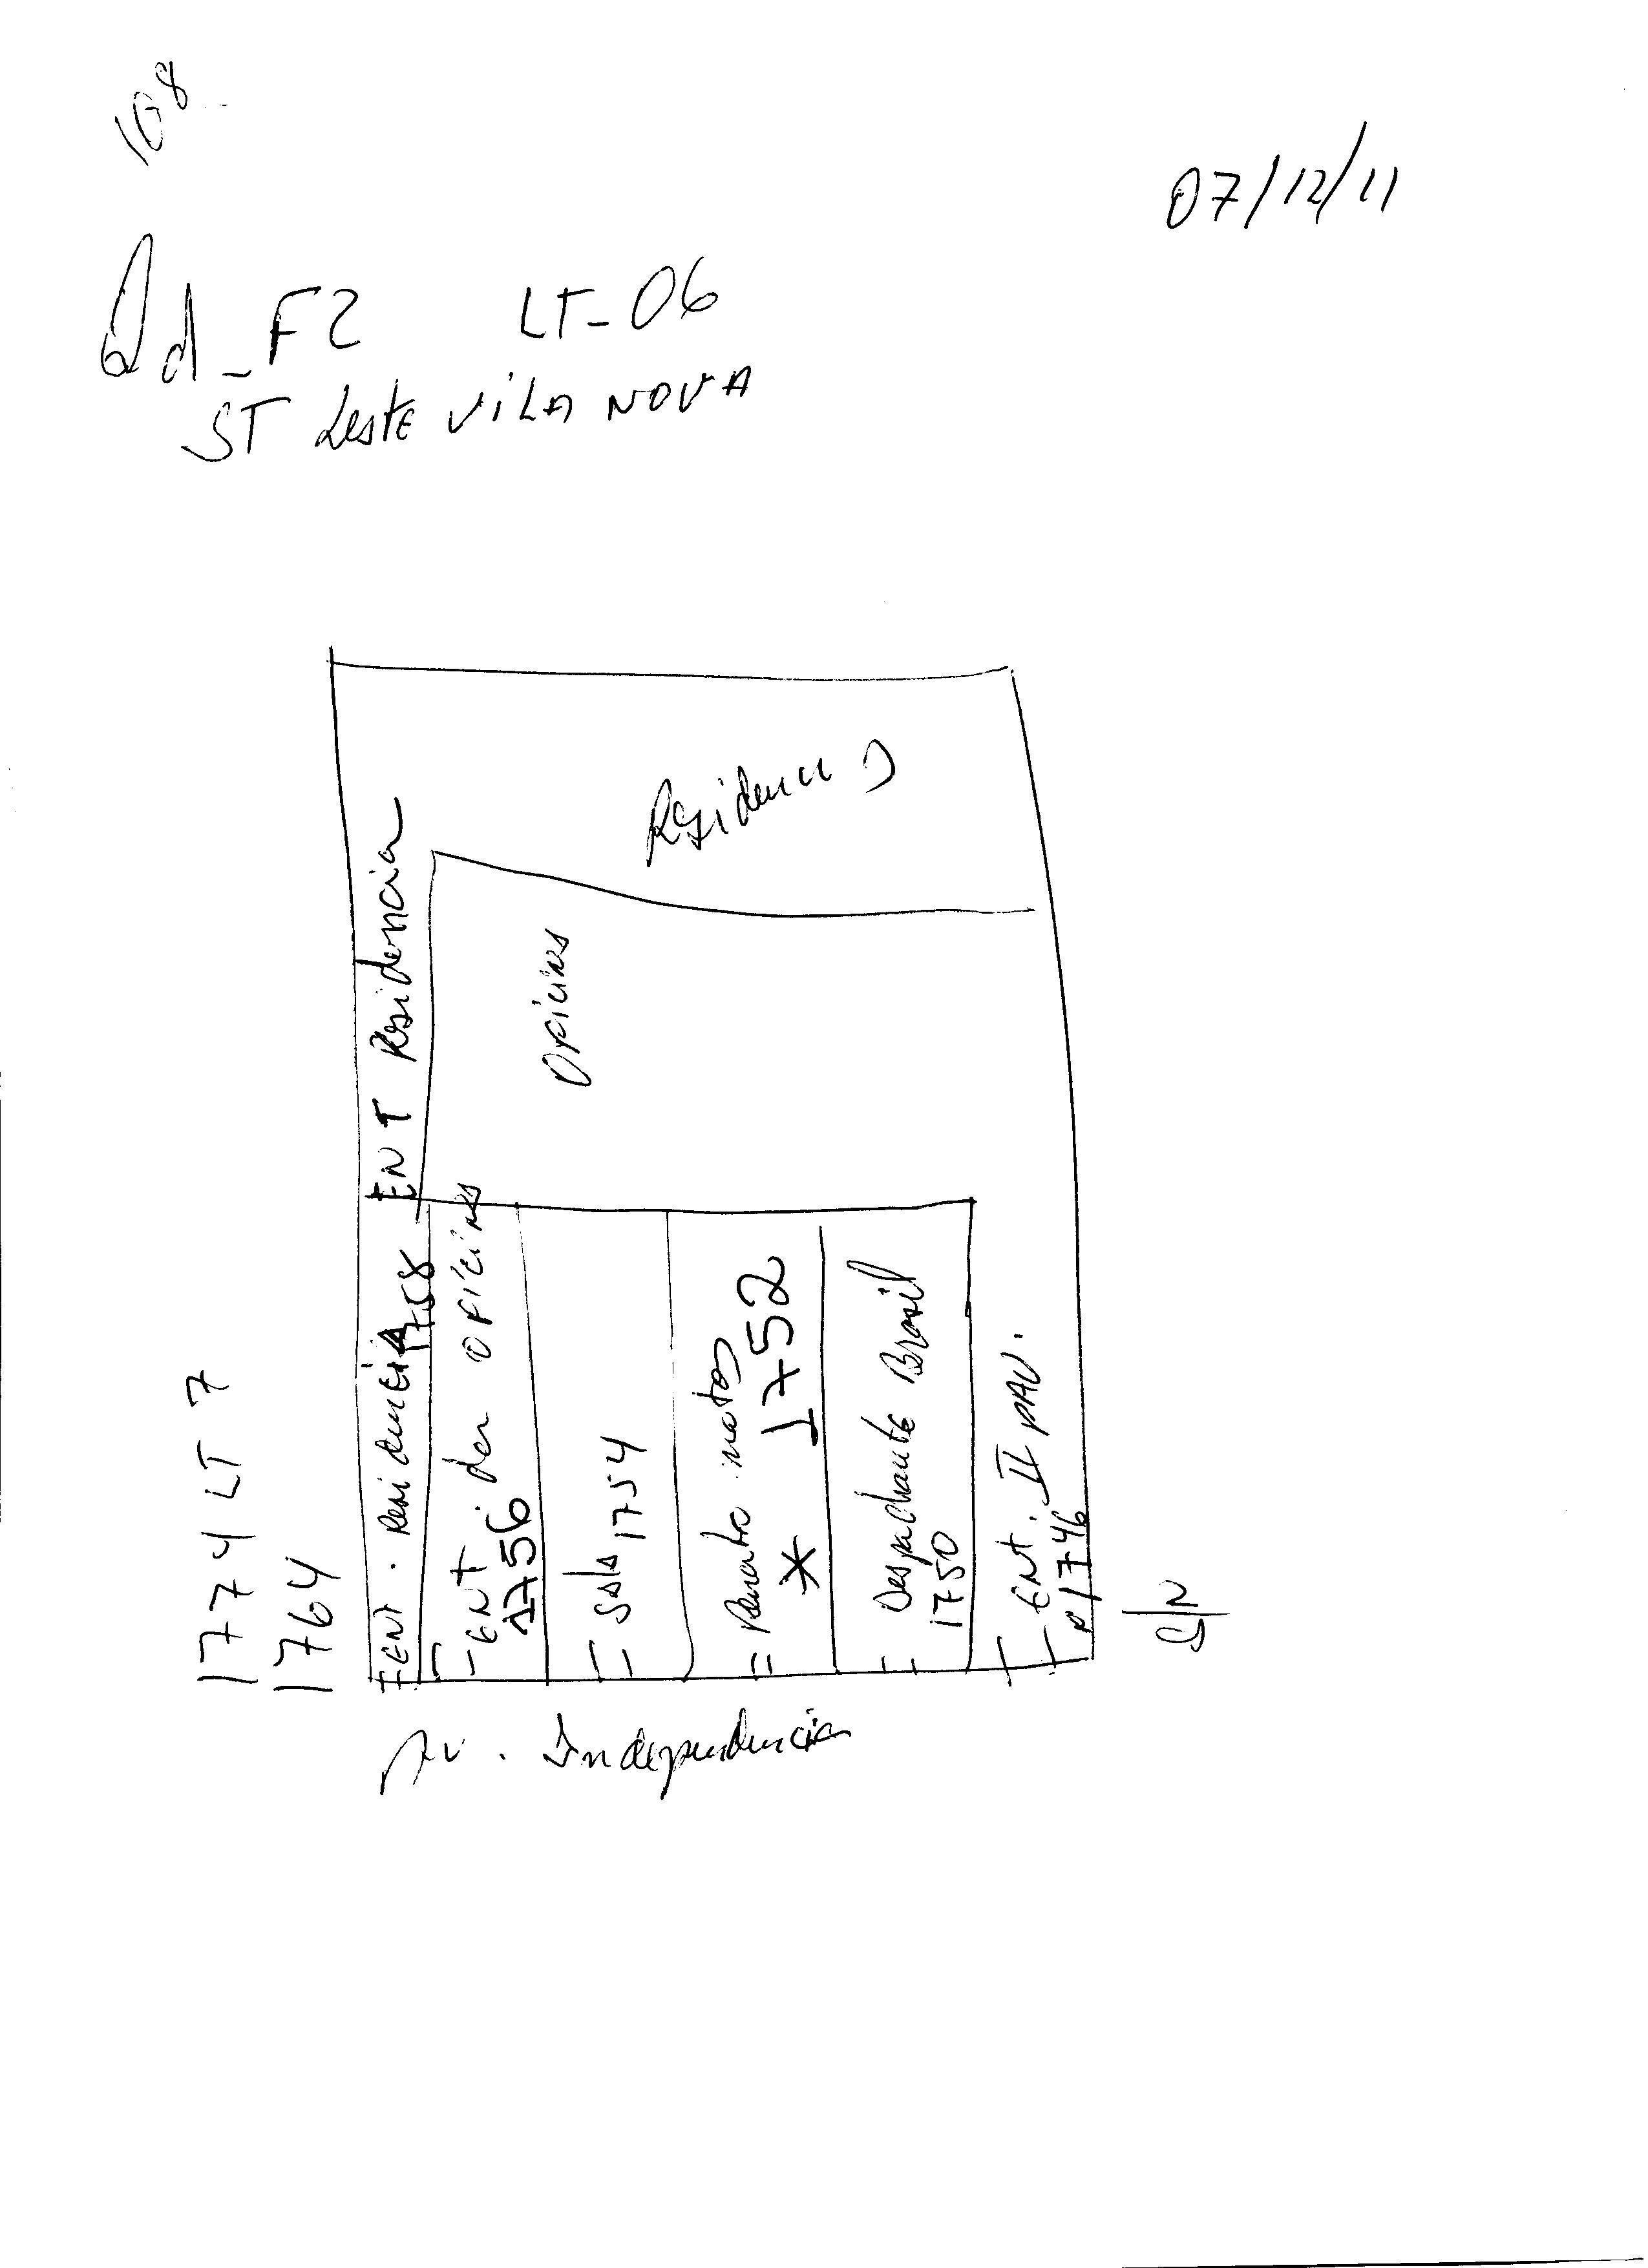 108
07/12/11
Qd_F2 LT-06
ST Leste ViLA NOVA
Residencia
ENT Residencia
Oficina
1774 LT 7
1764
ENT. Residencia 1758
ENT. da oficina
1756
Sala 1754
motos
* 1752
Despachante Brasil
1750
ENT. II PAV.
Nº 1746
S/N
Av. Independencia